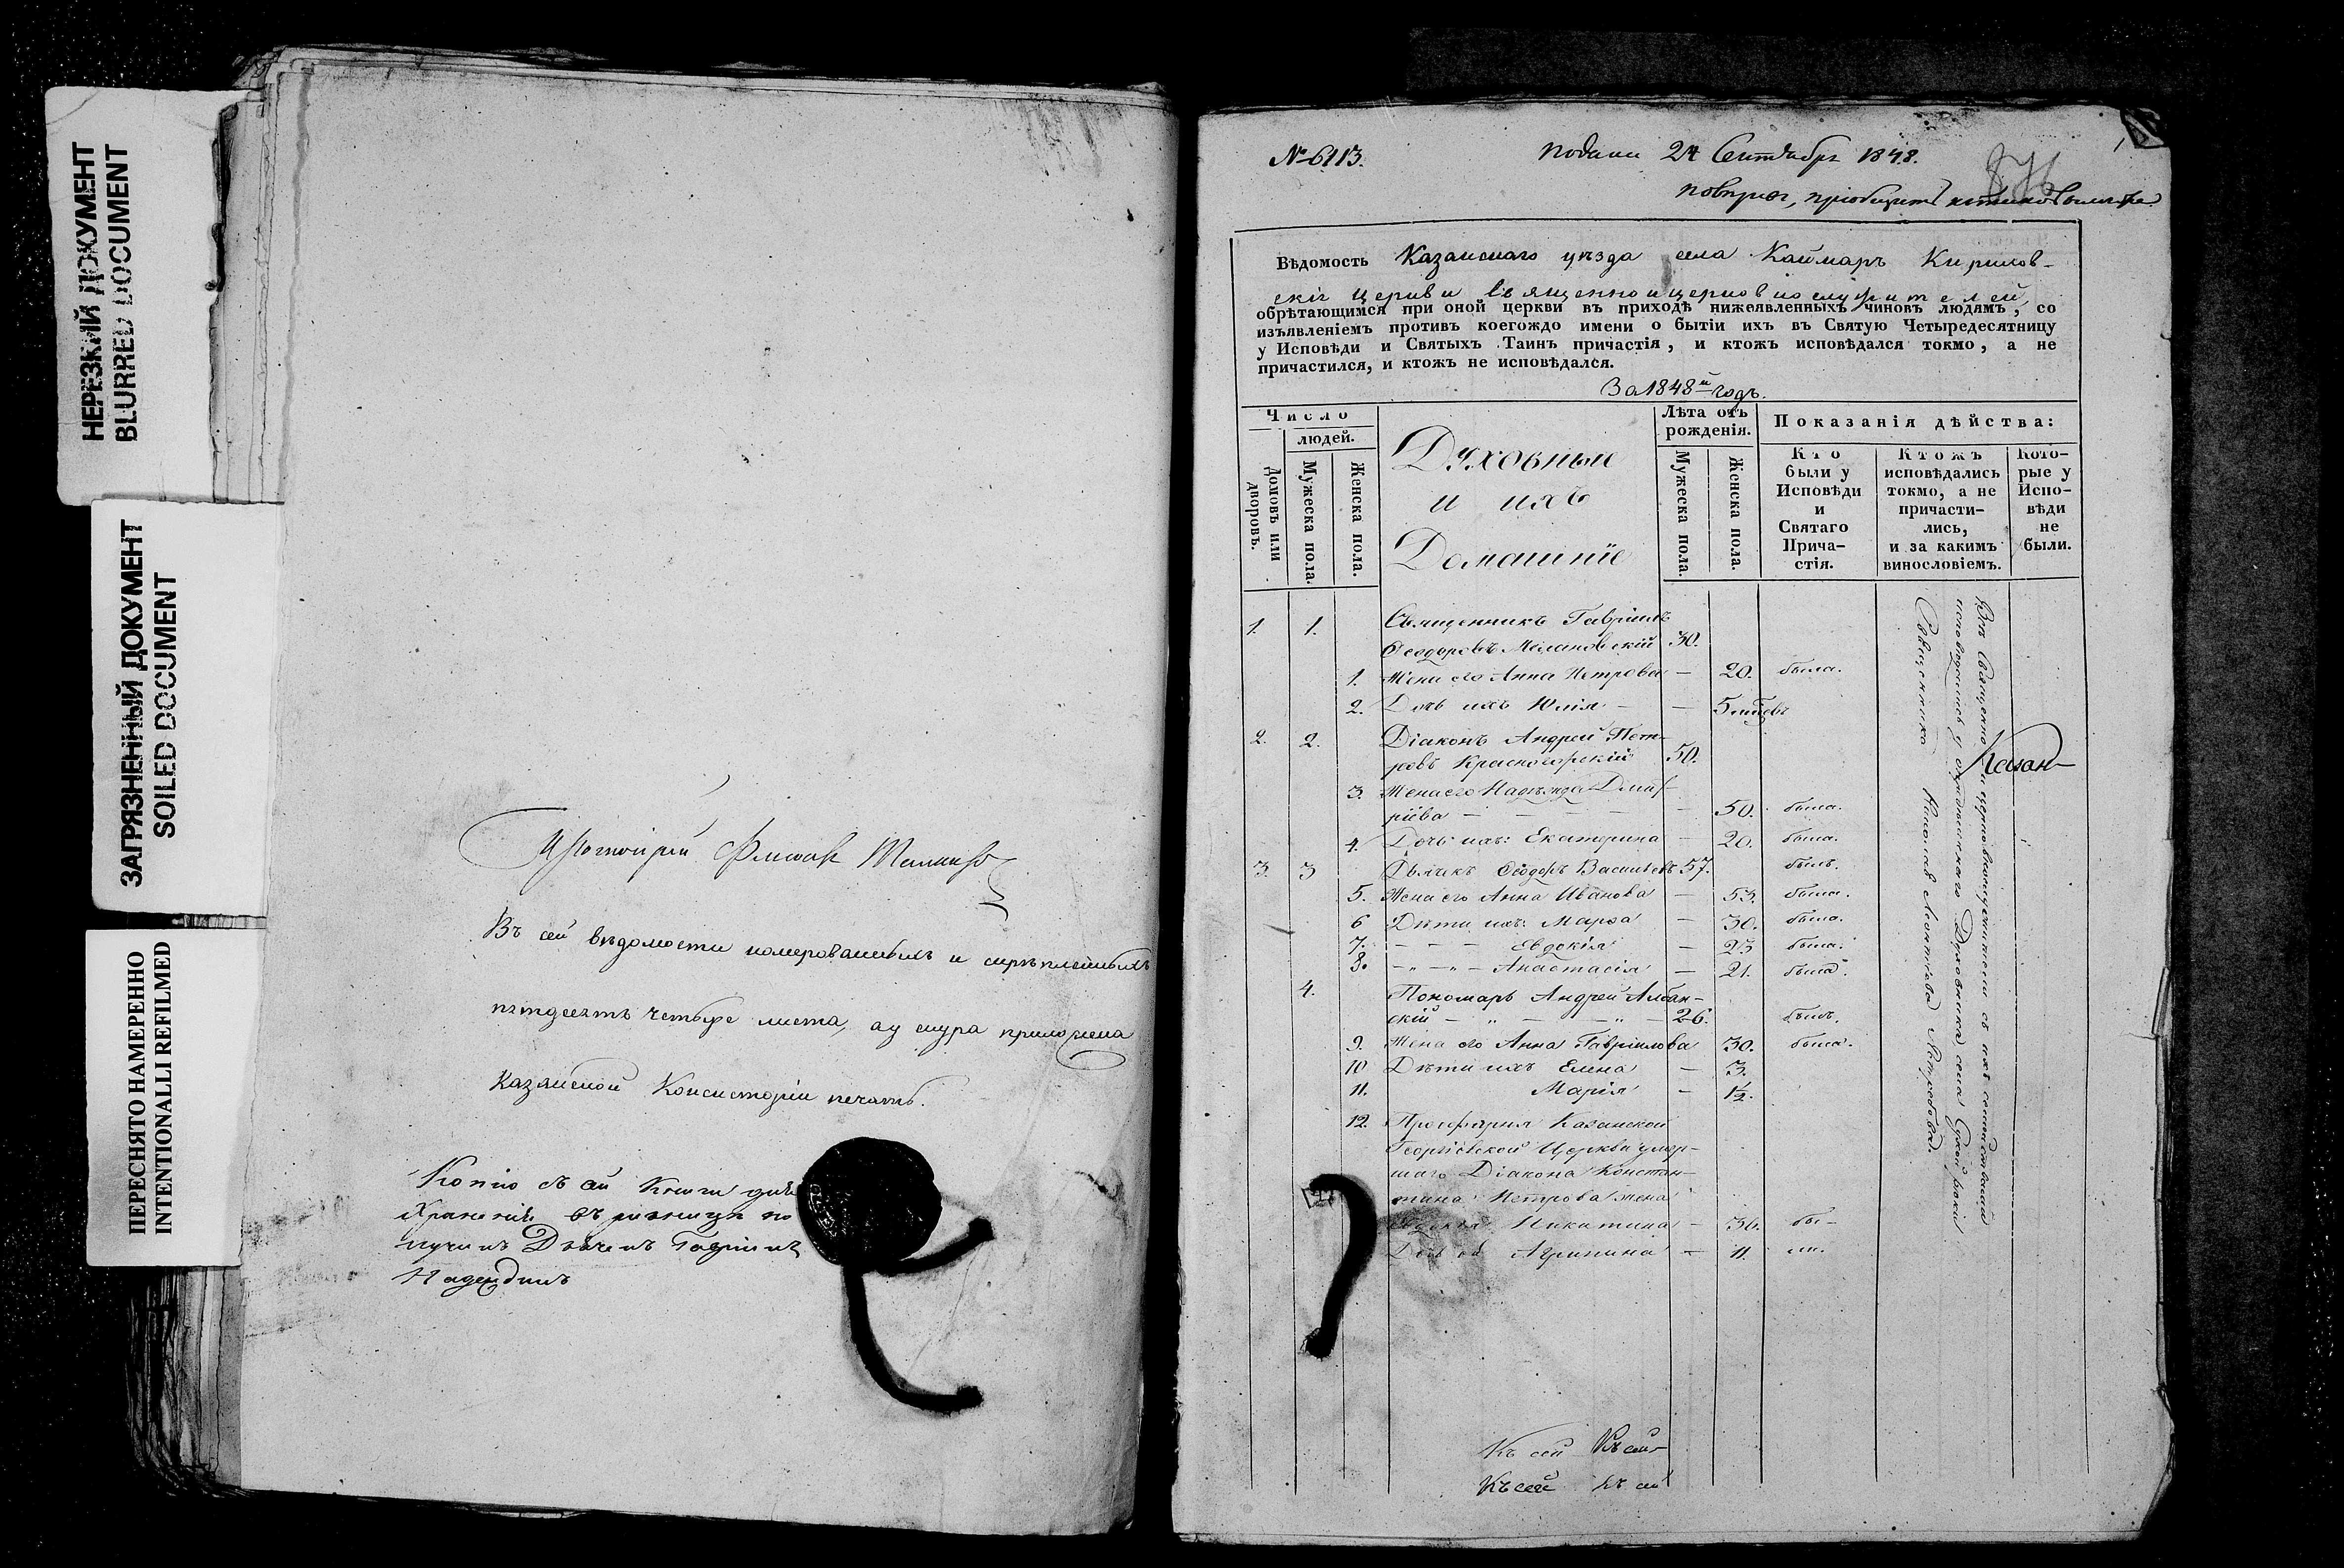 НЕРЕЗКИЙ ДОКУМЕНТ
BLURRED DOCUMENT
ЗАГРЯЗНЕННЫЙ ДОКУМЕНТ
SOILED DOCUMENT
ПЕРЕСНЯТО НАМЕРЕННО
INTENTIONALLI REFILMED
Въ сей вѣдомости номерованныхъ и скрѣпленныхъ
пятдесятъ четыре листа, а у шнура приложена
Казанской Консисторіи печать.
Копію съ сей Книги для
храненія въ ризницѣ по
лучилъ Дьячекъ Гаврiилъ
№ 6113.
подани 24 Сентября 1848.
876
Вѣдомость Казанскаго уѣзда села Каймаръ Кирилов-
скія церкви священно и церковнослужителей,
обрѣтающимся при оной церкви въ приходѣ нижеявленныхъ чиновъ людямъ, со
изъявленіемъ противъ коегождо имени о бытіи ихъ въ Святую Четыредесятницу
у Исповѣди и Святыхъ Таинъ причастія, и ктожъ исповѣдался токмо, а не
причастился, и ктожъ не исповѣдался.
За 1848й годъ.
Число
людей.
Домовъ или дворовъ.
Мужеска пола.
Женска пола.
Духовныи
и ихъ
Домашніе
Лѣта отъ
рожденія.
Мужеска пола.
Женска пола.
Показанія дѣйства:
Кто
были у
Исповѣди
и
Святаго
Прича-
стія.
Ктожъ
исповѣдались
токмо, а не
причасти-
лись,
и за какимъ
винословіемъ.
Кото-
рые у
Испо-
вѣди
не
были.
1. 1. Священникъ Гавріилъ
Ѳеодоровъ Милановскій 30.
1. Жена его Анна Петрова — 20. была.
2. Дочь ихъ Юлія — — 5 мѣсяцевъ
2. 2. Діаконъ Андрей Пет-
ровъ Красногорскій 50.
3. Жена его Надежда Дмит-
ріева — — — — 50. была.
4. Дочь ихъ: Екатерина — 20. была.
3. 3 Дьячекъ Ѳеодоръ Васильевъ 57. былъ.
5. Жена его Анна Иванова — 53. была.
6 Дѣти ихъ: Марѳа — 30. была.
7. — — — Евдокія — 23 была.
8. — „ — „ — Анастасія — 21. была.
4. Пономарь Андрей Албан-
скій — „ — — „ — 26. былъ.
9. Жена его Анна Гавріилова 30. была.
10 Дѣти ихъ Елена — 3.
11. Марія — 1½.
12. Просфирня Казанской
Георгіевской Церкви умер-
шаго Діакона Констан-
тина Петрова жена
Никитина — 36. бы-
Агрипина — 11. ли.
Всѣ Священно и церковнослужители съ ихъ семействами
исповѣдались у окружнаго Духовника села Сухой рѣки
Священника Николая Леонтьева
Казан-
Къ сей Къ сей
Къ сей Къ сей